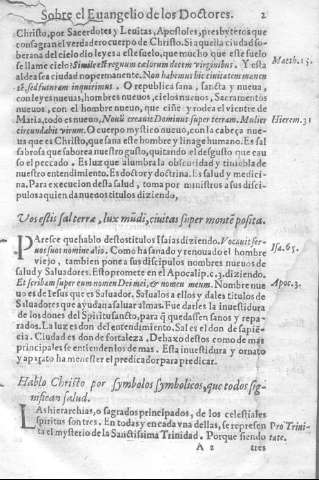 Sobre el Euangelio de los Doctores. 2
Christo, por Sacerdotes y Leuitas, Apostoles, presbyteros que
consagran el verdadero cuerpo de Christo. Si aquella ciudad so-
berana del cielo dio leyes a este suelo, que mucho que este suelo
se llame cielo? Simile est regnum cælorum decem virginibus. Y esta Matth. 25.
aldea sea ciudad no permanente. Non habemus hic ciuitatem manen
tẽ, sed futuram inquirimus. O republica sana, sancta y nueua,
con leyes nueuas, hombres nueuos, cielos nueuos, Sacramentos
nueuos, con el hombre nueuo, que ciñe y rodea el vientre de
Maria, todo es nueuo, Nouũ creauit Dominus super terram. Mulier Hierem. 31
circundabit virum. O cuerpo mystico nueuo, con la cabeça nue-
ua que es Christo, que sana este hombre y linage humano. Es sal
sabrosa que saborea nuestro gusto, quitando el desgusto que cau
so el peccado. Es luz que alumbra la obscuridad y tiniebla de
nuestro entendimiento. Es doctor y doctrina. Es salud y medici-
na. Para execucion desta salud, toma por ministros a sus disci-
pulos a quien da nueuos titulos diziendo,
Vos estis sal terræ, lux mũdi, ciuitas super montẽ posita.
Paresce que hablo destos titulos Isaias diziendo. Vocauit ser- Isa. 65.
uos suos nomine alio. Como ha sanado y renouado el hombre
viejo, tambien pone a sus discipulos nombres nueuos de
salud y Saluadores. Esto promete en el Apocalip. c. 3. diziendo. Apoc. 3.
Et scribam super eum nomen Dei mei, & nomen meum. Nombre nue
uo es de Iesus que es Saluador. Señalo los a ellos y dales titulos de
Saluadores que ayudan a saluar almas. Fue darles la inuestidura
de los dones del Spiritu sancto, para q̃ quedassen sanos y repa-
rados. La luz es don del entendimiento. Sal es el don de sapiẽ-
cia. Ciudad es don de fortaleza, Debaxo destos como de mas
principales se entienden los de mas. Esta inuestidura y ornato
y aparato ha menester el predicador para predicar.
Hablo Christo por symbolos symbolicos, que todos sig-
nifican salud.
Las hierarchias, o sagrados principados, de los celestiales
spiritus son tres. En todas y en cada vna dellas, se represen Pro Trini-
ta el mysterio de la Sanctissima Trinidad. Porque siendo tate.
A 2 tres